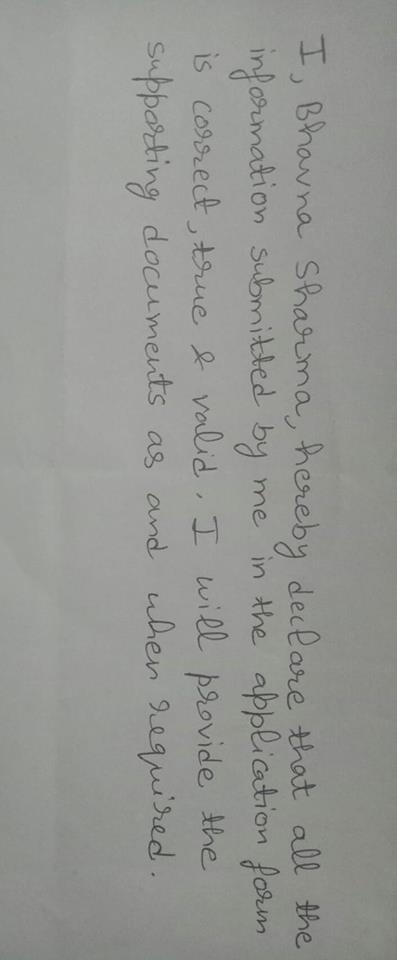 I, Bhavna Sharma, hereby declare that all the
information submitted by me in the application form
is correct, true & valid. I will provide the
supporting documents as and when required.